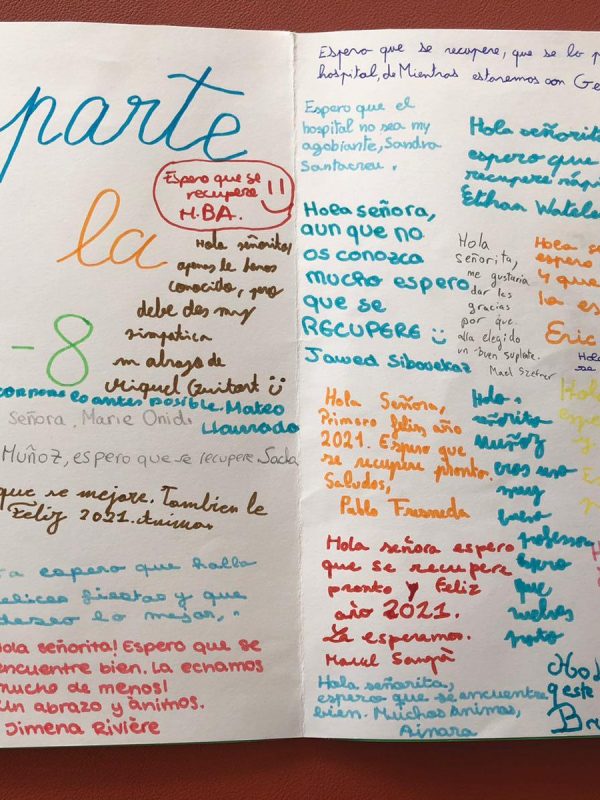 parte
la
-8
Espero que se
recupere
M.BA.
Hola señorita,
apenas le hemos
conocido, pero
debe des muy
simpatica
un abrazo de
Miquel Guitart
corpore lo antes posible. Mateo
Llaurado
Señora, Marie Onidi
Muñoz, espero que se recupere. Sacha
que se mejore. Tambien le
Feliz 2021. Animo.
espero que halla
felices fiestas y que
deseo lo mejor,
Hola señorita! Espero que se
encuentre bien. La echamos
mucho de menos!
Un abrazo y ánimos.
Jimena Rivière
Espero que se recupere, que se lo p
hospital, de Mientras estaremos con Ge
Espero que el
hospital no sea my
agobiante, Sandra
Santacreu.
Hola señorita
espero que
recupere rápi
Ethan Watele
Hola señora,
aun que no
os conozca
mucho espero
que se
RECUPERE
Jawed Sibovekaz
Hola
señorita,
me gustaria
dar les
gracias
por que
alla elegido
un buen suplate.
Mael Szefner
Hola se
espero
y que
la es
Eric
Hola
se
Hola
espe
y
Hola Señora,
Primero feliz año
2021. Espero que
se recupere pronto.
Saludos,
Pablo Fresneda
Hola
señorita
Muñoz
eres una
muy
buena
professora
Espero
que
vuelvas
pronto
Hola señora espero
que se recupere
pronto y Feliz
año 2021.
La esperamos.
Marcel Sangà
Hola señorita,
espero que se encuentre
bien. Muchos Animos,
Ainara
Hod
q este
Br